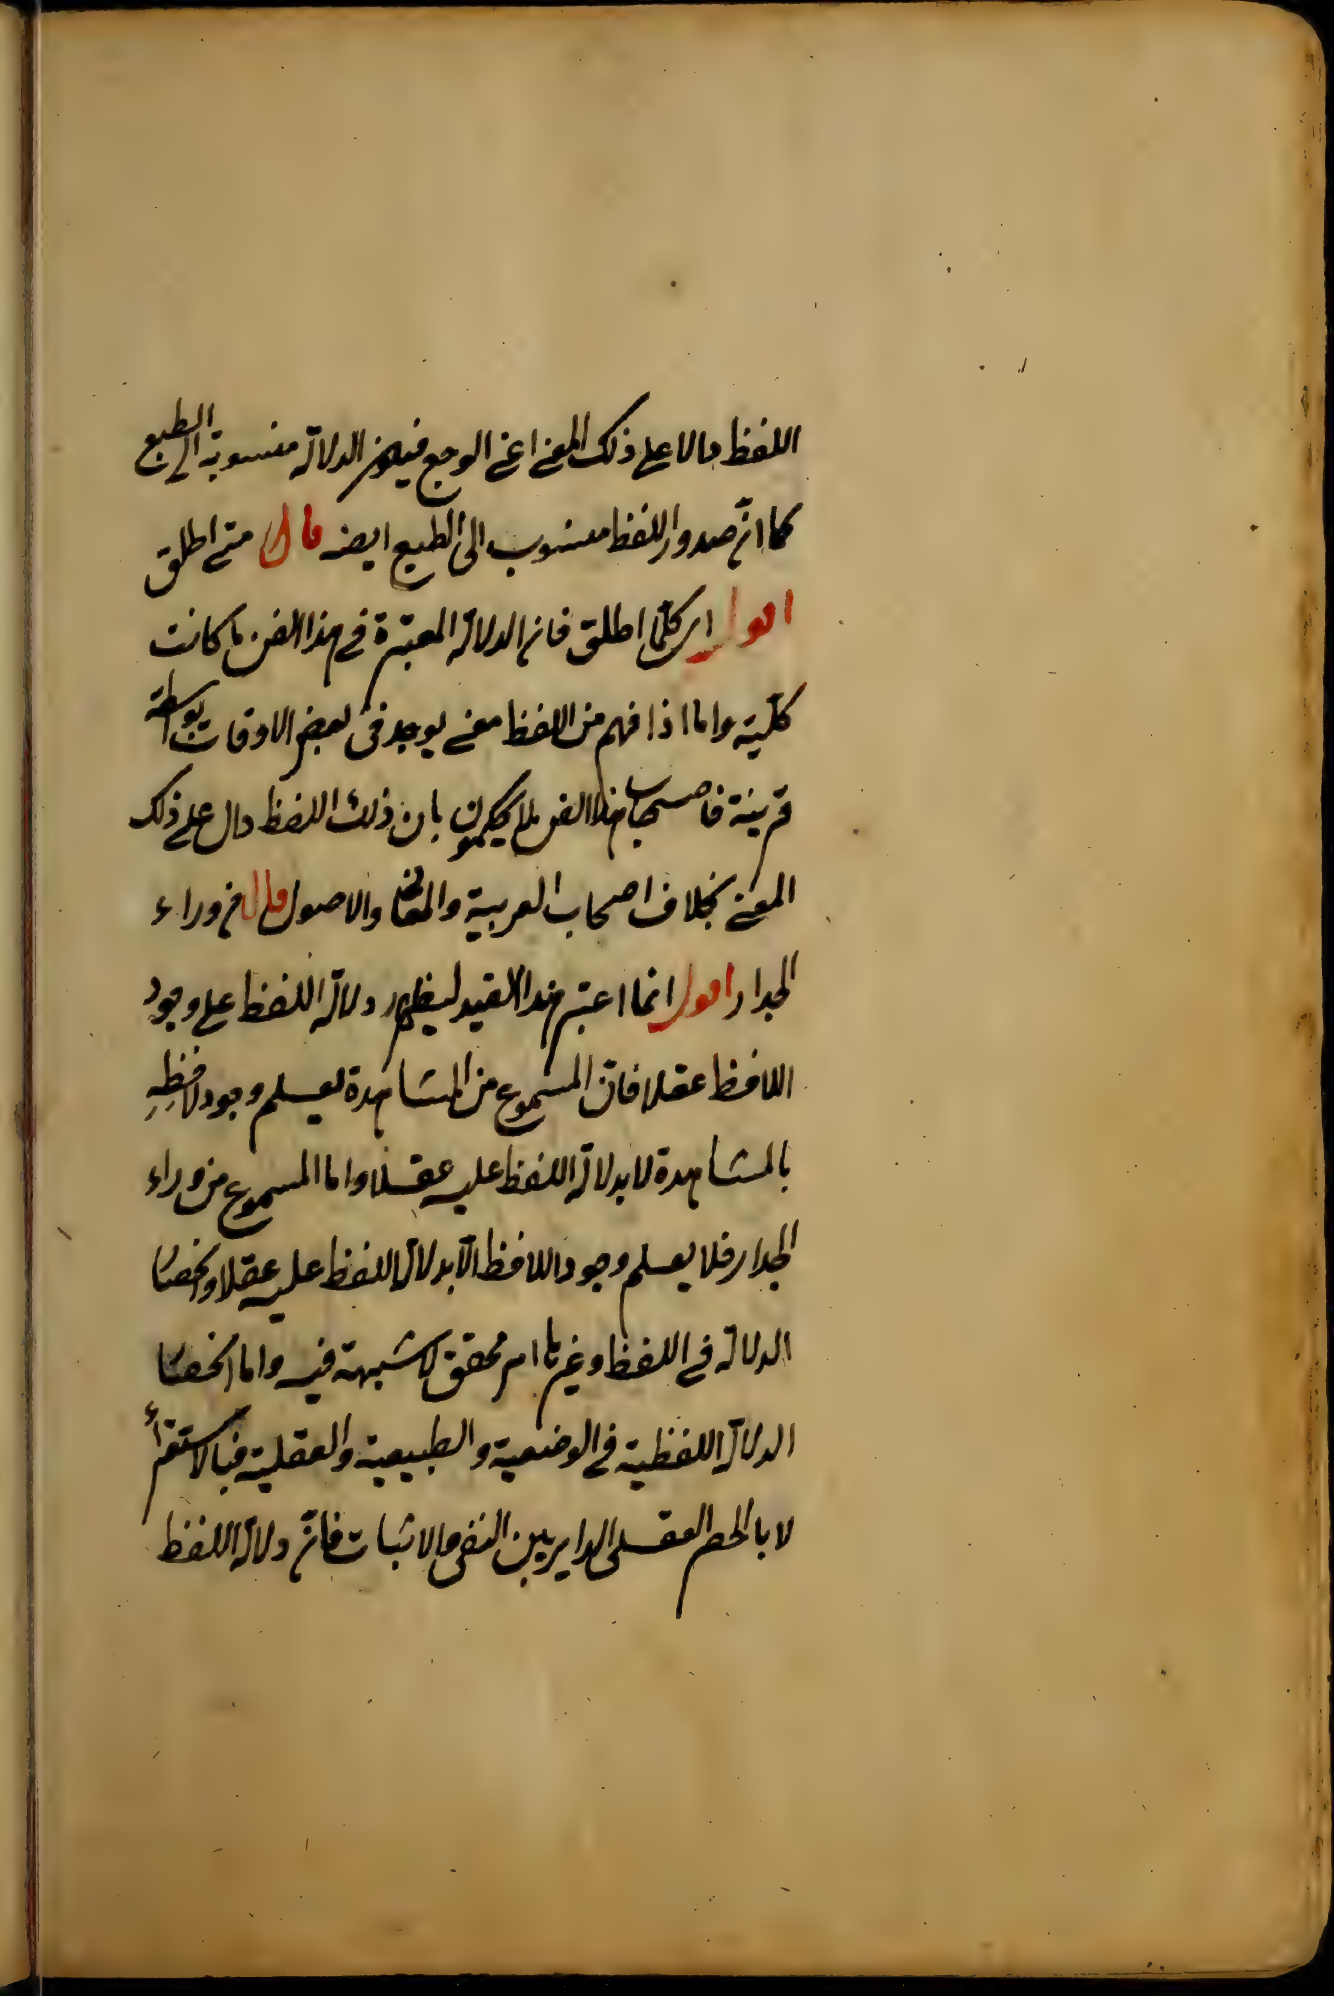 اللفظ دالا على ذلك المعنى اعني الوجع فيكون الدلالة منسوبة الى الطبع
كما انّ صدور اللفظ منسوب الى الطبع ايضا قال متى اطلق
اقول اى كلّما اطلق فان الدلالة المعتبرة في هذا الفن ما كانت
كلّية واما اذا فهم من اللفظ معنى يوجد فى بعض الاوقات بواسطة
قرينة فاصحاب هذا الفن لا يحكمون بان ذلك اللفظ دال على ذلك
المعنى بخلاف اصحاب العربية والاصول قال من وراء
الجدار اقول انما اعتبر هذا القيد ليظهر دلالة اللفظ على وجود
اللافظ عقلا فانّ المسموع من المشاهدة يعلم وجود لافظِهِ
بالمشاهدة لا بدلالة اللفظ عليه عقلا واما المسموع من وراء
الجدار فلا يعلم وجود اللافظ الّا بدلالة اللفظ عليه عقلا وانحصار
الدلالة في اللفظ وغيرها امر محقق لا شبهة فيه واما انحصار
الدلالة اللفظية في الوضعية والطبيعية والعقلية فبالاستقراء
لا بالحصر العقلى الداير بين النفى والاثبات فانّ دلالة اللفظ